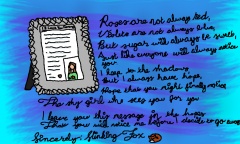 Roses are not always red,
Violets are not always blue,
But sugar will always be sweet,
Just like everyone will always notice
you.
I keep to the shadows
But I always have hope,
Hope that you might finally notice,
The shy girl who sees you for you
I leave you this message in the hopes
That you will notice me before I decide to go away
Sincerely, Stinking Fox